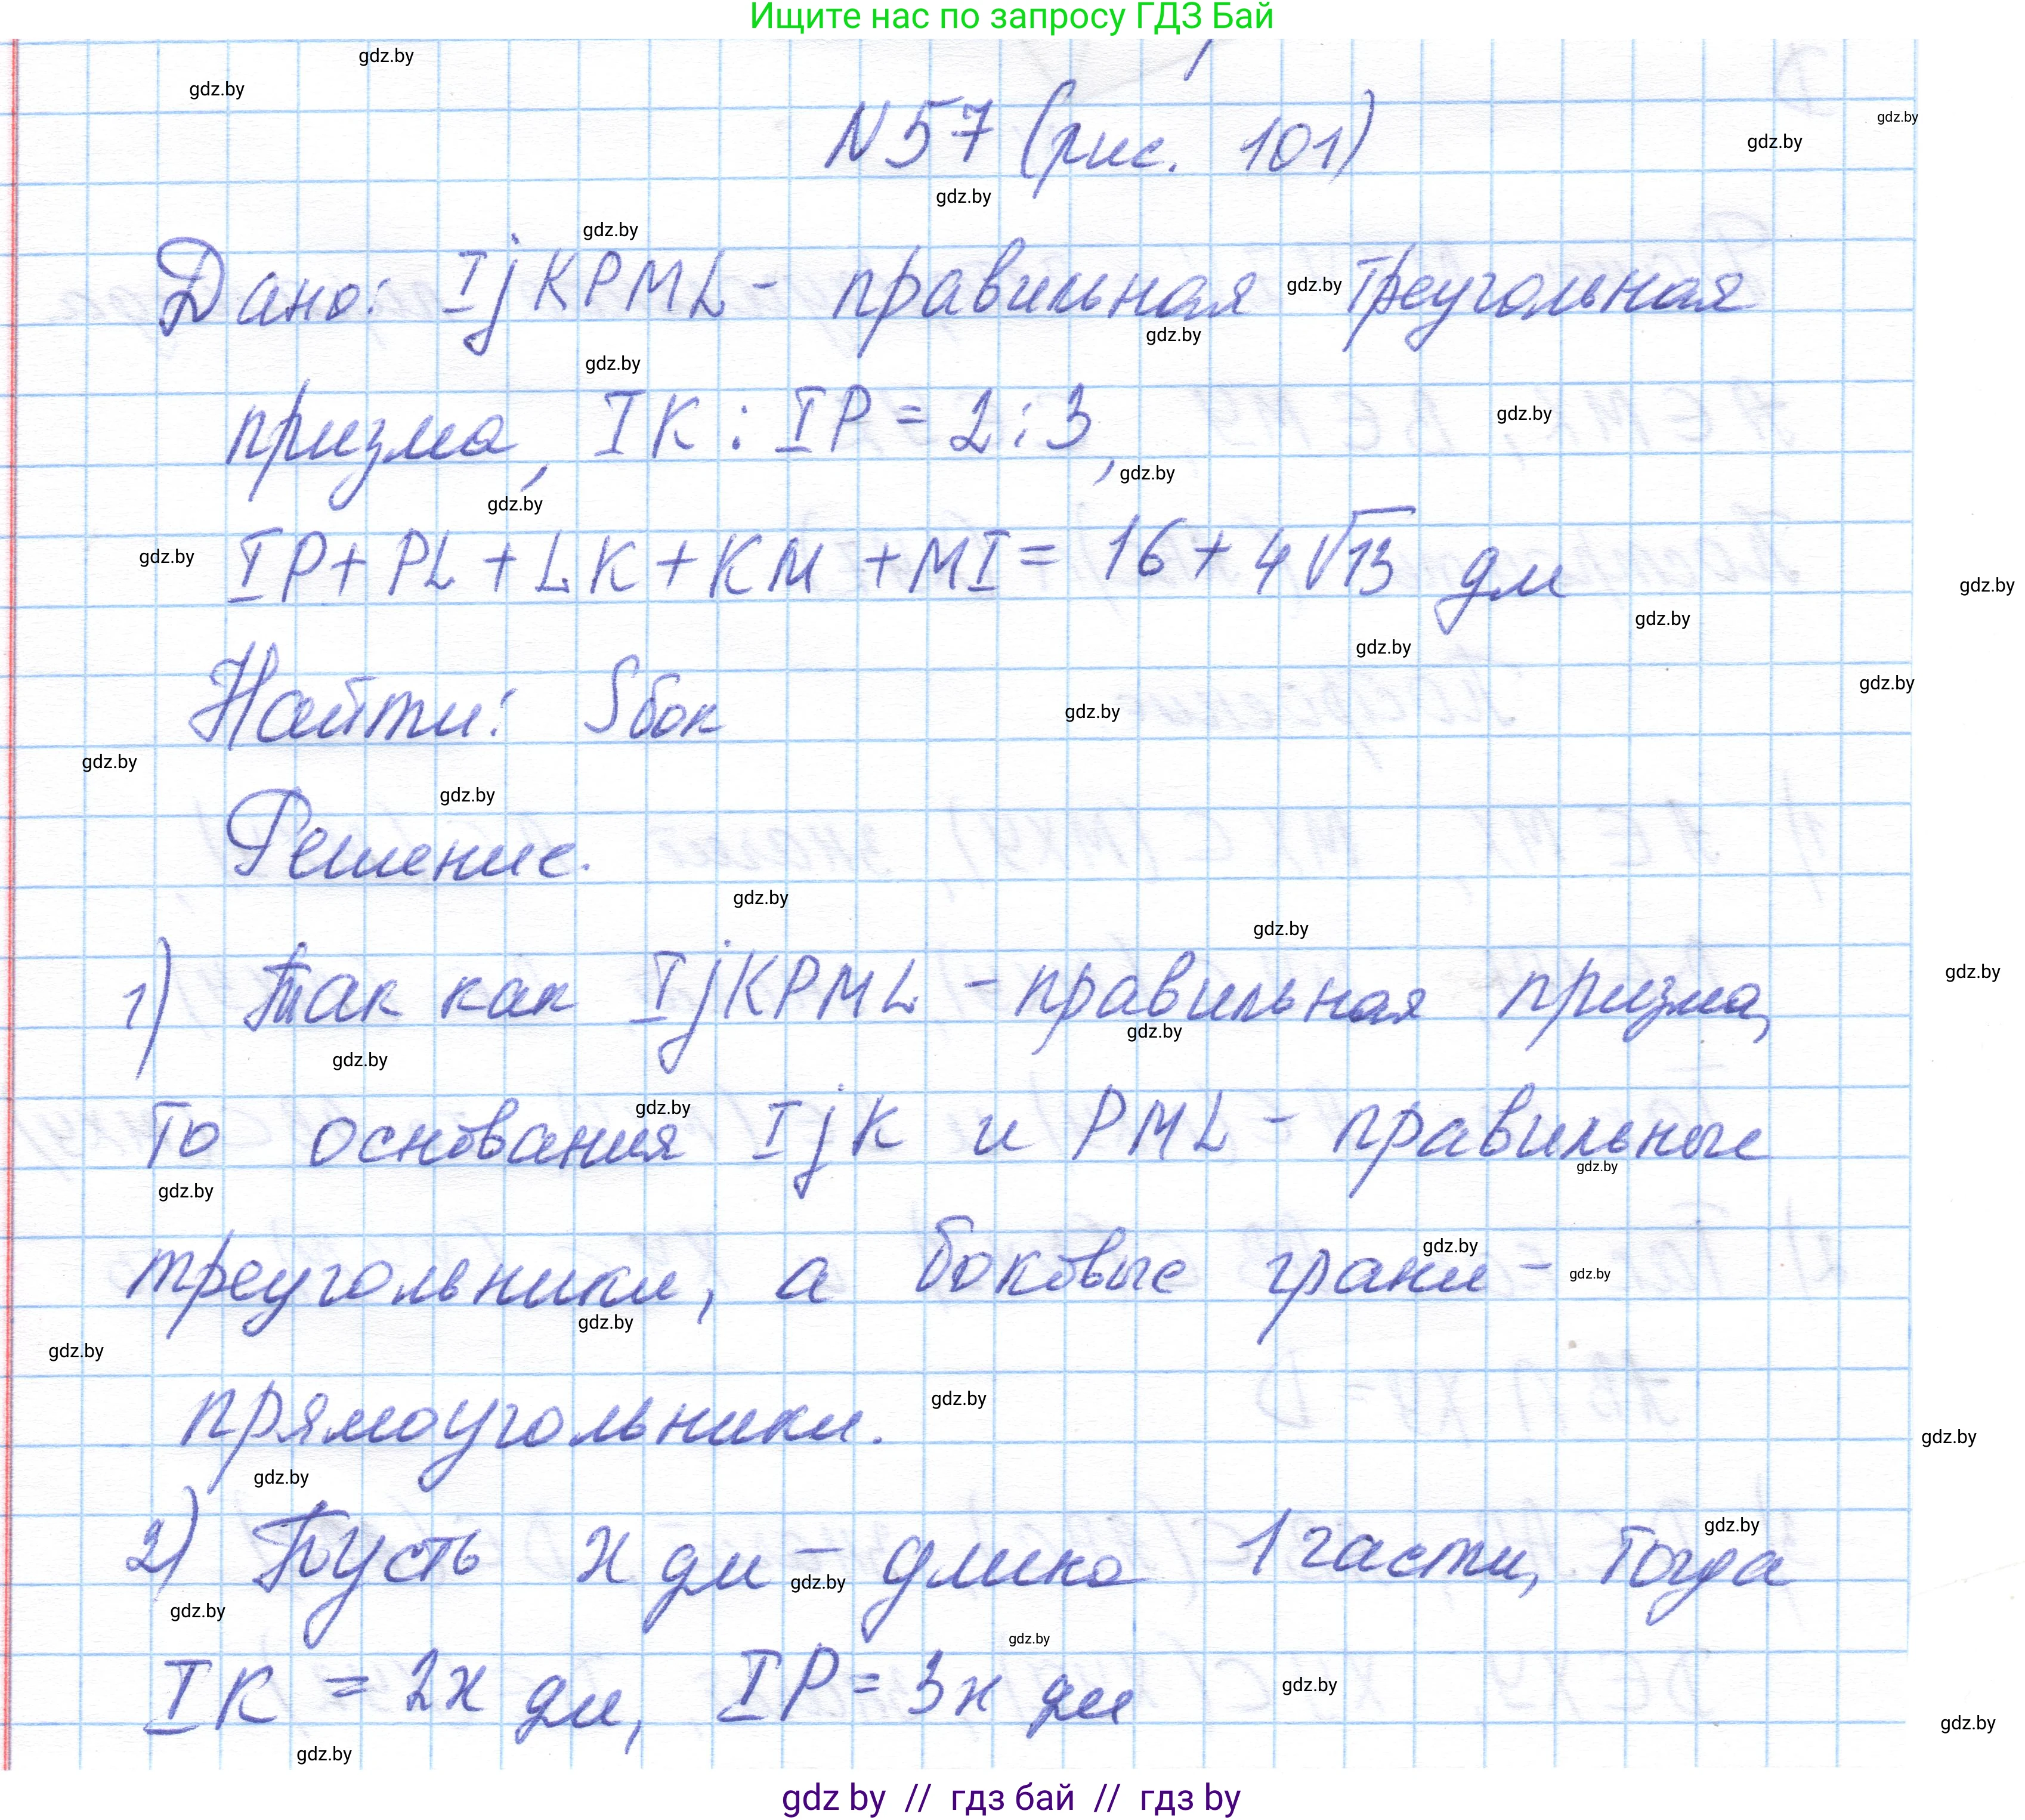 Ищите нас по запросу ГДЗ Бай
gdz.by
gdz.by
N57 (рис. 101)
gdz.by
gdz.by
gdz.by
gdz.by
Дано: IjKPML - правильная треугольная
gdz.by
gdz.by
gdz.by
призма, IK : IP = 2 : 3,
gdz.by
gdz.by
gdz.by
gdz.by
IP + PL + LK + KM + MI = 16 + 4√13 дм
gdz.by
gdz.by
gdz.by
gdz.by
Найти: Sбок
gdz.by
gdz.by
gdz.by
gdz.by
Решение.
gdz.by
gdz.by
1) Так как IjKPML - правильная призма,
gdz.by
gdz.by
gdz.by
то основания IjK и PML - правильные
gdz.by
gdz.by
gdz.by
треугольники, а боковые грани -
gdz.by
gdz.by
gdz.by
gdz.by
прямоугольники.
gdz.by
gdz.by
gdz.by
2) Пусть x дм - длина 1 части, тогда
gdz.by
gdz.by
gdz.by
IK = 2x дм, IP = 3x дм
gdz.by
gdz.by
gdz.by
gdz.by
gdz by // гдз бай // гдз by